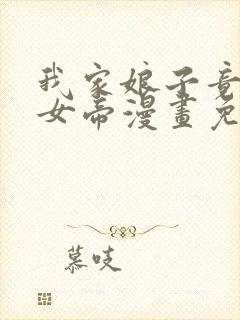 我家娘子竟
女帝漫畫免
慕吱